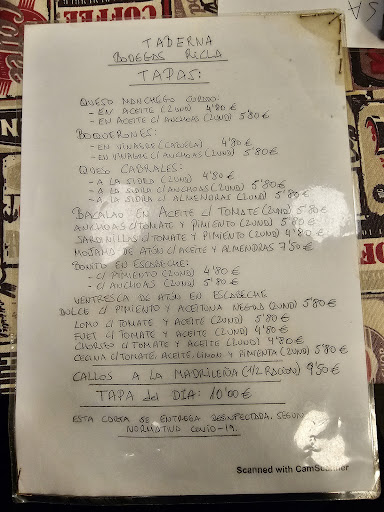 TABERNA
BODEGAS RICLA
TAPAS:
QUESO MANCHEGO CURADO:
- EN ACEITE (2UND) 4'80 €
- EN ACEITE C/ ANCHOAS (2UND) 5'80 €
BOQUERONES:
- EN VINAGRE (CAZUELA) 4'80 €
- EN VINAGRE C/ ANCHOAS (2UND) 5'80 €
QUESO CABRALES:
- A LA SIDRA (2UND) 4'80 €
- A LA SIDRA C/ ANCHOAS (2UND) 5'80 €
- A LA SIDRA C/ ALMENDRAS (2UND) 5'80 €
BACALAO EN ACEITE C/ TOMATE (2UND) 5'80 €
ANCHOAS C/ TOMATE Y PIMIENTO (2UND) 5'80 €
SARDINILLAS C/ TOMATE Y PIMIENTO (2UND) 4'80 €
MOJAMA DE ATÚN C/ ACEITE Y ALMENDRAS 7'50 €
BONITO EN ESCABECHE:
- C/ PIMIENTO (2UND) 4'80 €
- C/ ANCHOAS (2UND) 5'80 €
VENTRESCA DE ATÚN EN ESCABECHE
DULCE C/ PIMIENTO Y ACEITUNA NEGRA (2UND) 5'80 €
LOMO C/ TOMATE Y ACEITE (2UND) 5'80 €
FUET C/ TOMATE Y ACEITE (2UND) 4'80 €
CHORIZO C/ TOMATE Y ACEITE (2UND) 4'80 €
CECINA C/ TOMATE, ACEITE, LIMÓN Y PIMIENTA (2UND) 5'80 €
CALLOS A LA MADRILEÑA (1/2 RACIÓN) 9'50 €
TAPA del DIA: 10'00 €
ESTA CARTA SE ENTREGA DESINFECTADA, SEGUN
NORMATIVA COVID-19.
Scanned with CamScanner
COFFEE